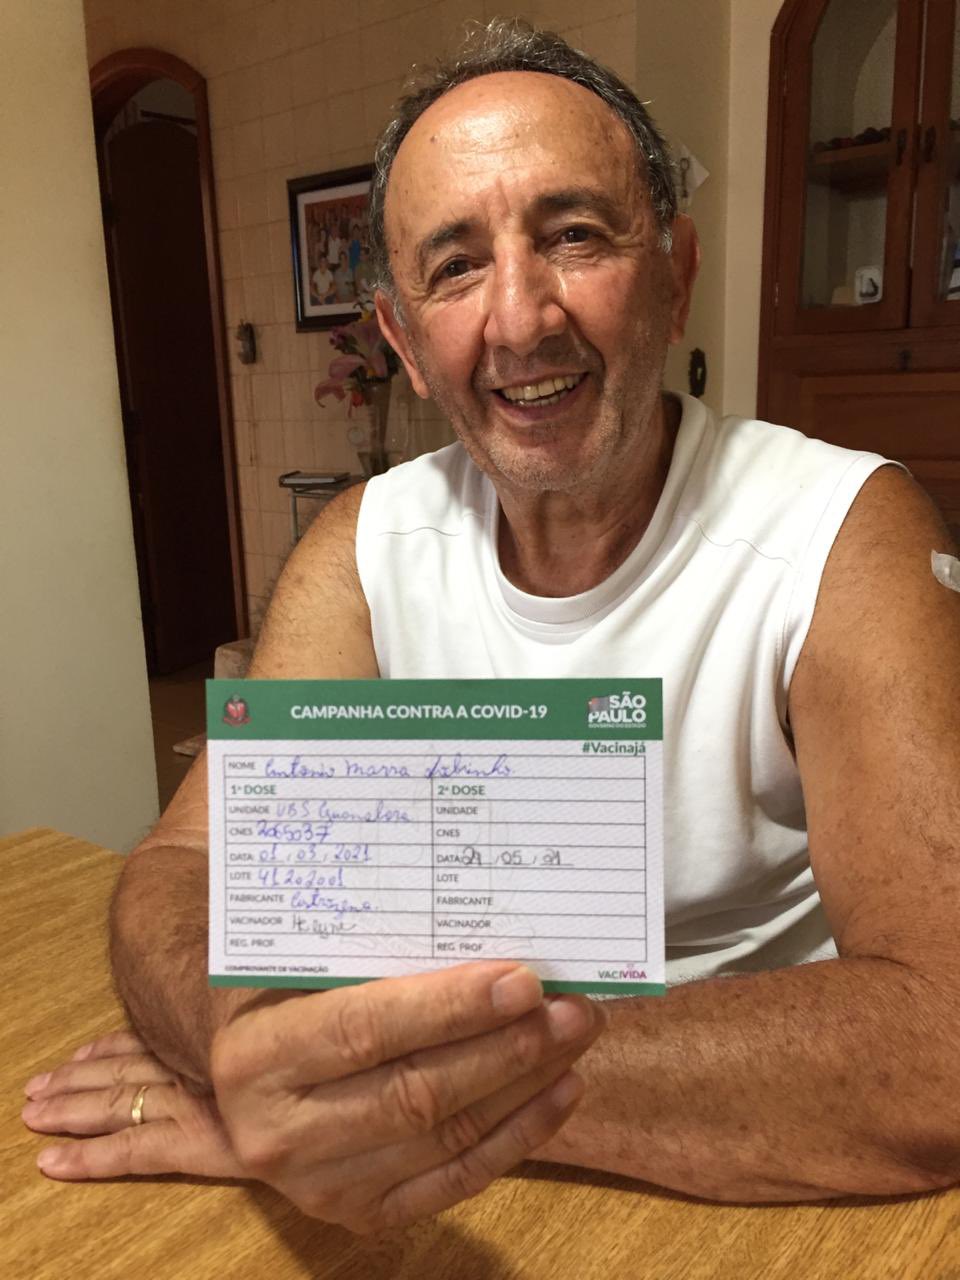 CAMPANHA CONTRA A COVID-19
SÃO PAULO
GOVERNO DO ESTADO
#Vacinajá
NOME Antonio Marra Sobrinho
1ª DOSE 2ª DOSE
UNIDADE UBS Guanabara UNIDADE
CNES 2065037 CNES
DATA 01/03/2021 DATA 24/05/21
LOTE 41202001 LOTE
FABRICANTE FABRICANTE
VACINADOR VACINADOR
REG. PROF. REG. PROF.
COMPROVANTE DE VACINAÇÃO VACIVIDA